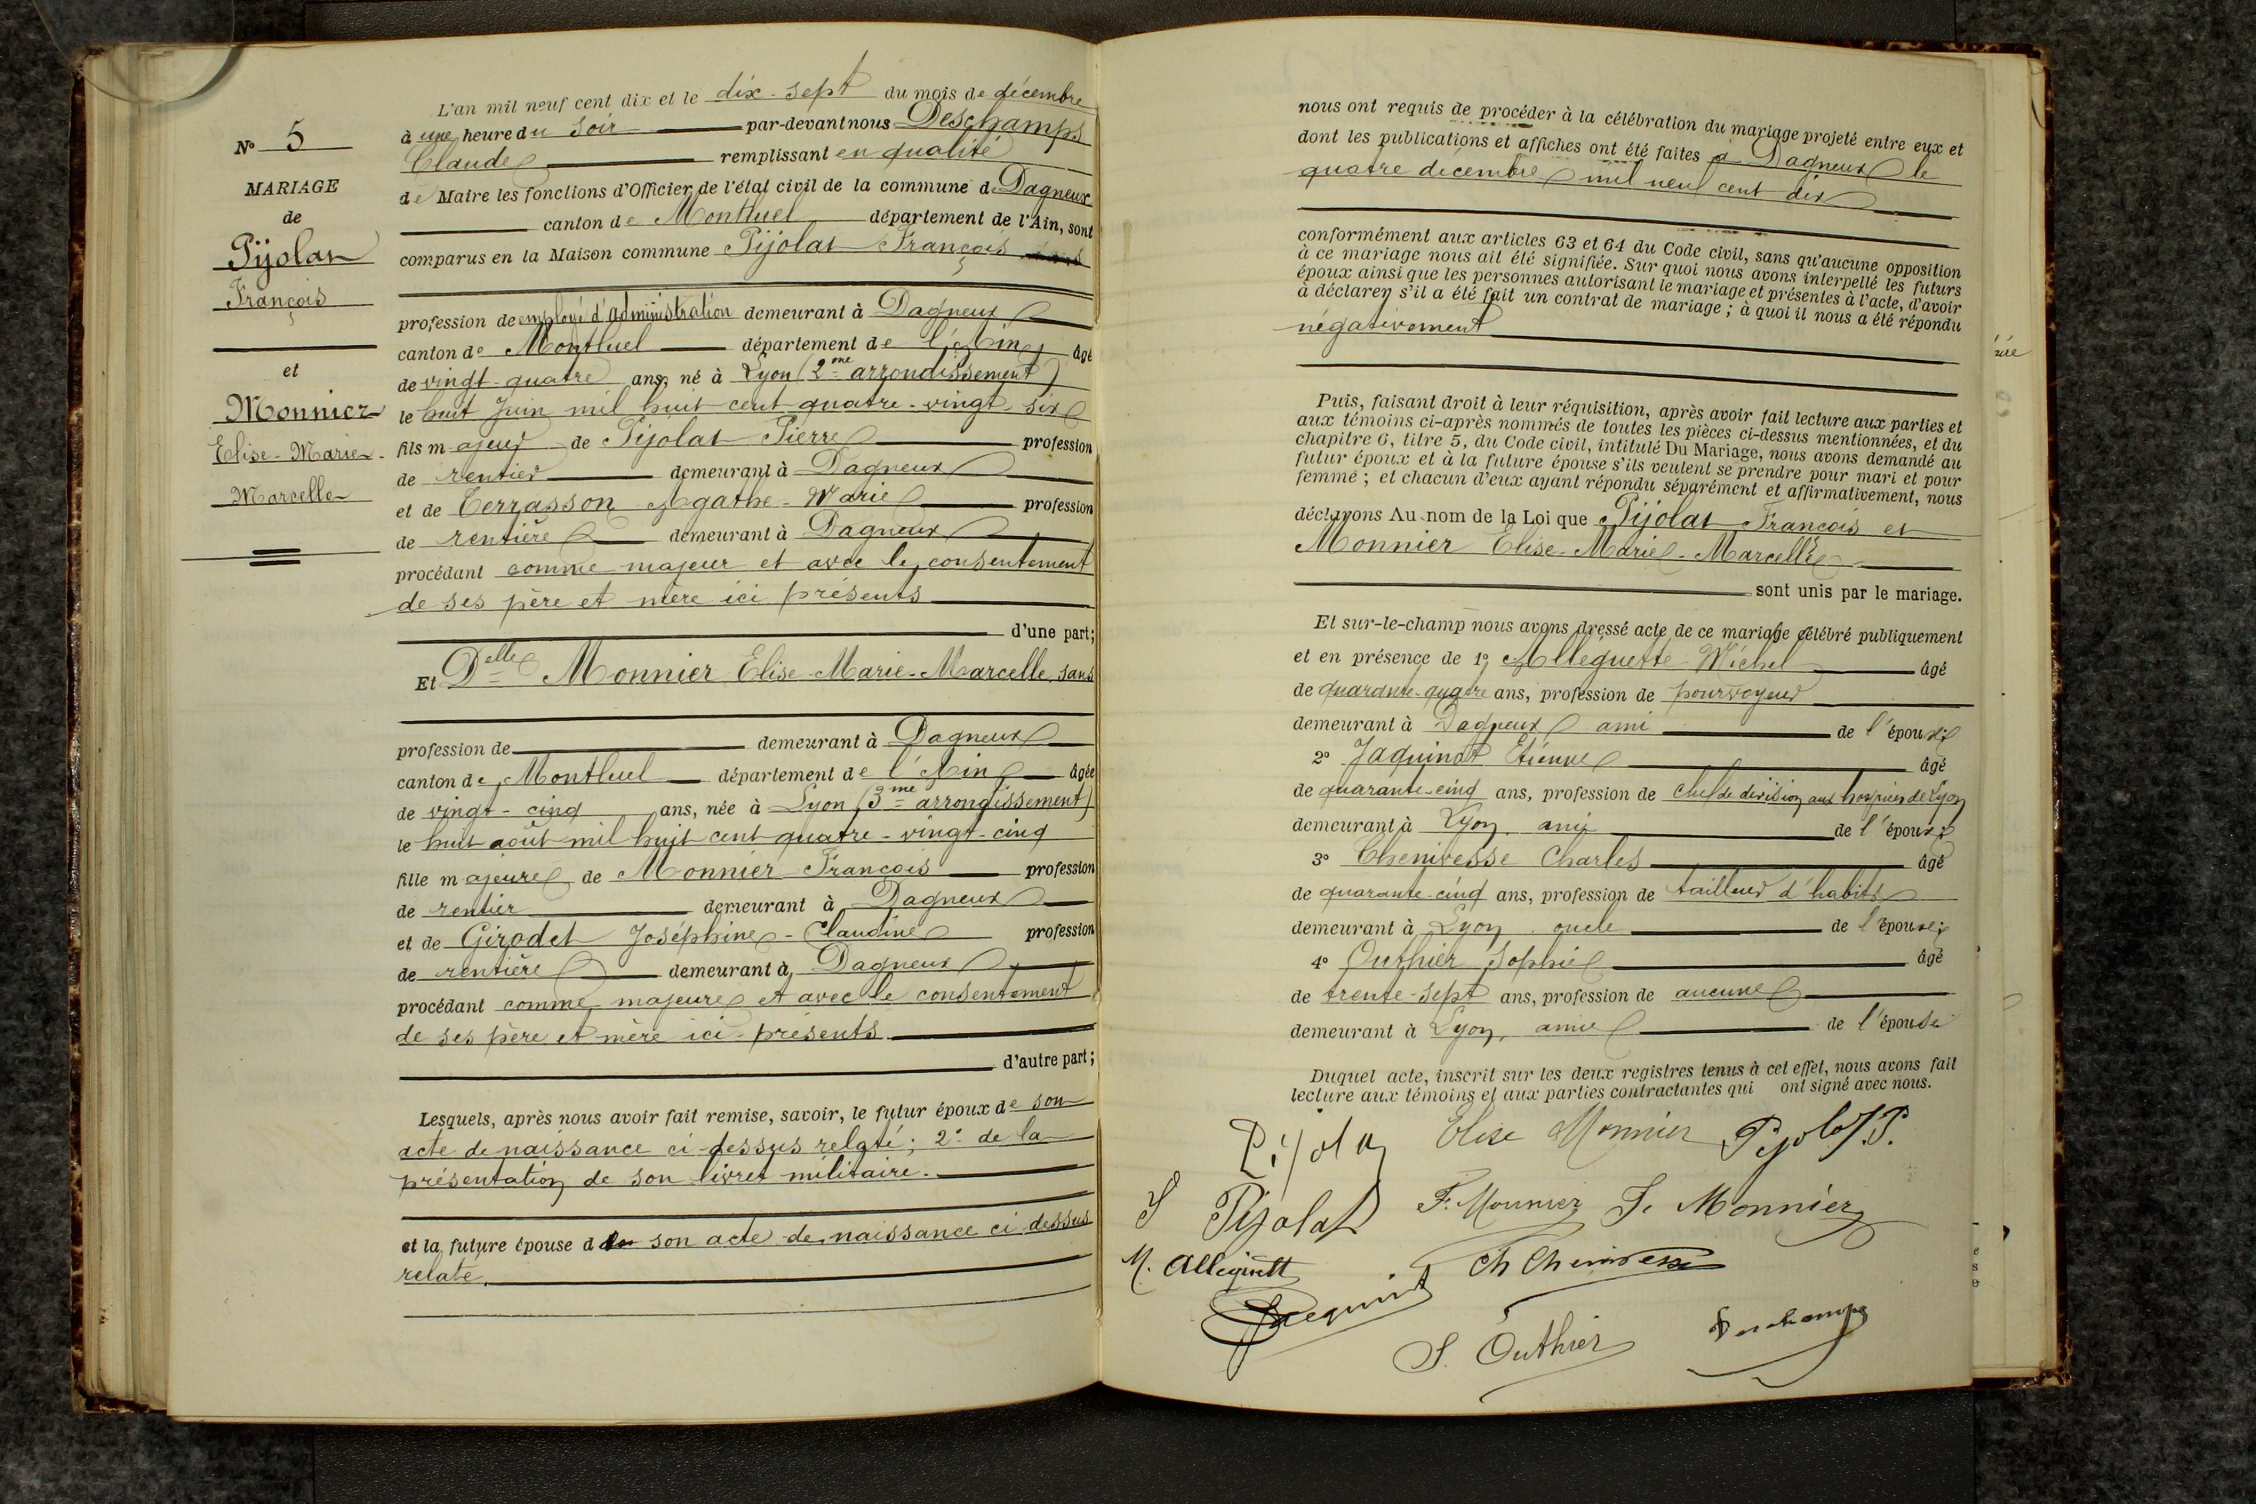 N° 5
MARIAGE
de
Pijolat
François
et
Monnier
Elise-Marie-
Marcelle
L'an mil neuf cent dix et le dix-sept du mois de décembre
à une heure du soir par-devant nous Deschamps
Claude remplissant en qualité
de Maire les fonctions d'Officier de l'état civil de la commune de Dagneux
canton de Montluel département de l'Ain, sont
comparus en la Maison commune Pijolat François
profession de employé d'administration demeurant à Dagneux
canton de Montluel département de l'Ain âgé
de vingt-quatre ans, né à Lyon (2me arrondissement)
le huit Juin mil huit cent quatre-vingt-six
fils majeur de Pijolat Pierre profession
de rentier demeurant à Dagneux
et de Terrasson Agathe-Marie profession
de rentière demeurant à Dagneux
procédant comme majeur et avec le consentement
de ses père et mère ici présents
d'une part;
Et Delle Monnier Elise-Marie-Marcelle, sans
profession de demeurant à Dagneux
canton de Montluel département de l'Ain âgée
de vingt-cinq ans, née à Lyon (3me arrondissement)
le huit août mil huit cent quatre-vingt-cinq
fille majeure de Monnier François profession
de rentier demeurant à Dagneux
et de Girodet Joséphine-Claudine profession
de rentière demeurant à Dagneux
procédant comme majeure et avec le consentement
de ses père et mère ici présents
d'autre part;
Lesquels, après nous avoir fait remise, savoir, le futur époux de son
acte de naissance ci-dessus relaté; 2° de la
présentation de son livret militaire.
et la future épouse d son acte de naissance ci-dessus
relaté.
nous ont requis de procéder à la célébration du mariage projeté entre eux et
dont les publications et affiches ont été faites à Dagneux le
quatre décembre mil neuf cent dix
conformément aux articles 63 et 64 du Code civil, sans qu'aucune opposition
à ce mariage nous ait été signifiée. Sur quoi nous avons interpellé les futurs
époux ainsi que les personnes autorisant le mariage et présentes à l'acte, d'avoir
à déclarer s'il a été fait un contrat de mariage; à quoi il nous a été répondu
négativement
Puis, faisant droit à leur réquisition, après avoir fait lecture aux parties et
aux témoins ci-après nommés de toutes les pièces ci-dessus mentionnées, et du
chapitre 6, titre 5, du Code civil, intitulé Du Mariage, nous avons demandé au
futur époux et à la future épouse s'ils veulent se prendre pour mari et pour
femme; et chacun d'eux ayant répondu séparément et affirmativement, nous
déclarons Au nom de la Loi que Pijolat François et
Monnier Elise-Marie-Marcelle
sont unis par le mariage.
Et sur-le-champ nous avons dressé acte de ce mariage célébré publiquement
et en présence de 1° Alléguette Michel âgé
de quarante-quatre ans, profession de pourvoyeur
demeurant à Dagneux, ami de l'époux;
2° Jaquinot Etienne âgé
de quarante-cinq ans, profession de chef de division aux hospices de Lyon
demeurant à Lyon, ami de l'époux;
3° Chenivesse Charles âgé
de quarante-cinq ans, profession de tailleur d'habits
demeurant à Lyon oncle de l'épouse;
4° Outhier Sophie âgé
de trente-sept ans, profession de aucune
demeurant à Lyon, amie de l'épouse
Duquel acte, inscrit sur les deux registres tenus à cet effet, nous avons fait
lecture aux témoins et aux parties contractantes qui ont signé avec nous.
Pijolat Elise Monnier Pijolat P.
Pijolat F. Monnier J. Monnier
M. Allegrett Ch Chenivesse
Jacquinot
S. Outhier Deschamps